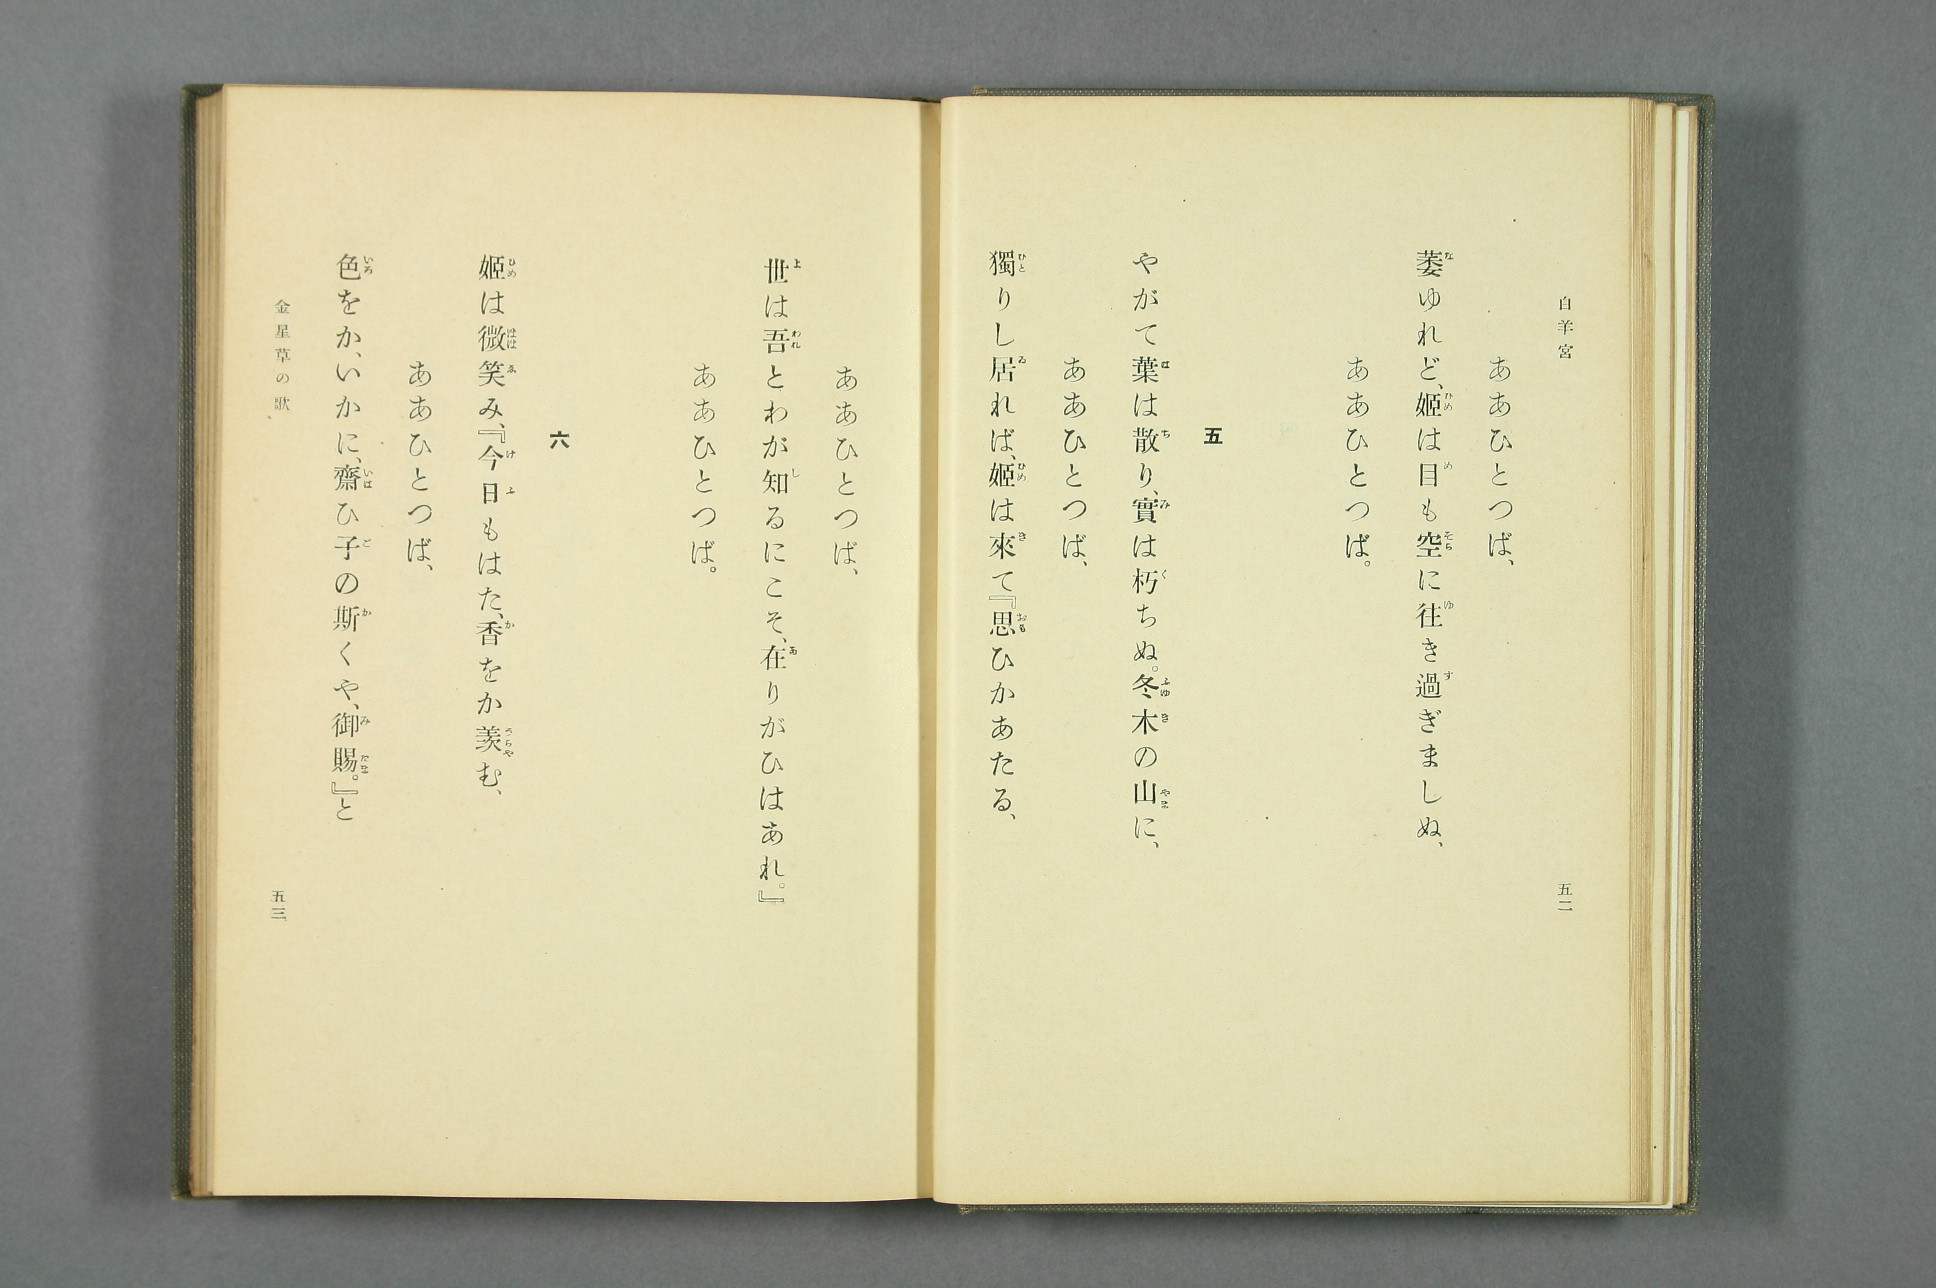 白羊宮
五二
ああひとつば、
萎ゆれど、姬は目も空に往き過ぎましぬ、
ああひとつば。
五
やがて葉は散り、實は朽ちぬ。冬木の山に、
ああひとつば、
獨りし居れば、姬は來て『思ひかあたる、
ああひとつば、
世は吾とわが知るにこそ、在りがひはあれ。』
ああひとつば。
六
姬は微笑み、『今日もはた、香をか羨む、
ああひとつば、
色をか、いかに、齋ひ子の斯くや、御賜。』と
金星草の歌
五三